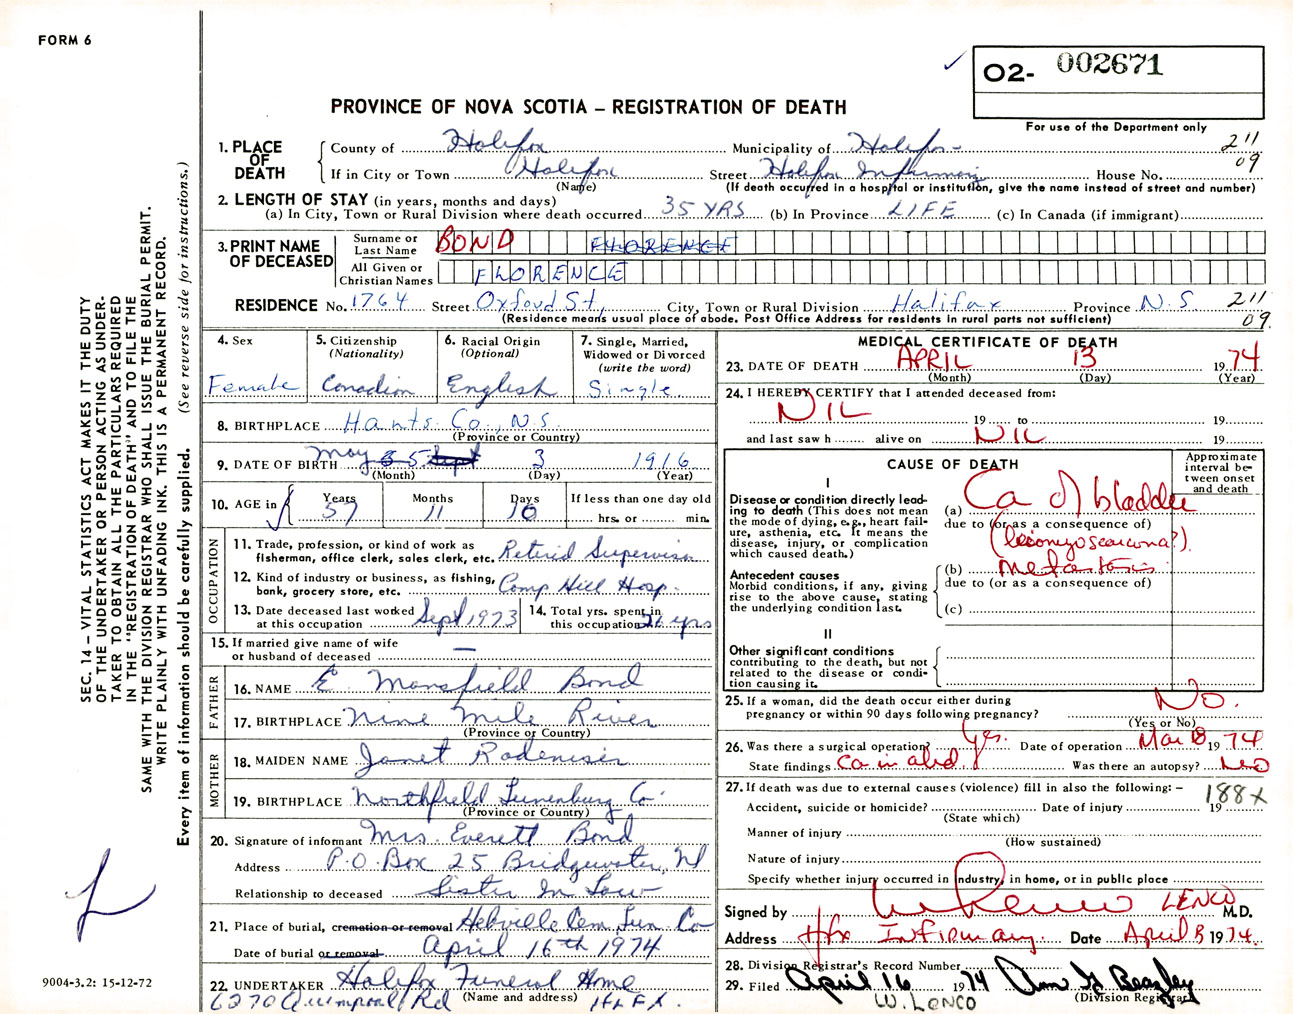 FORM 6
02- 002671
For use of the Department only
PROVINCE OF NOVA SCOTIA – REGISTRATION OF DEATH
1. PLACE OF DEATH
County of Halifax Municipality of Halifax 211
If in City or Town Halifax Street Halifax Infirmary House No. 09
(Name) (If death occurred in a hospital or institution, give the name instead of street and number)
2. LENGTH OF STAY (in years, months and days)
(a) In City, Town or Rural Division where death occurred 35 YRS (b) In Province LIFE (c) In Canada (if immigrant)
3. PRINT NAME OF DECEASED
Surname or Last Name BOND FLORENCE
All Given or Christian Names FLORENCE
RESIDENCE No. 1764 Street Oxford St, City, Town or Rural Division Halifax Province N.S 211
(Residence means usual place of abode. Post Office Address for residents in rural parts not sufficient) 09.
4. Sex Female
5. Citizenship (Nationality) Canadian
6. Racial Origin (Optional) English
7. Single, Married, Widowed or Divorced (write the word) Single
8. BIRTHPLACE Hants Co., N.S.
(Province or Country)
9. DATE OF BIRTH May 5 Sept 3 1916
(Month) (Day) (Year)
10. AGE in Years 57 Months 11 Days 10 If less than one day old
hrs. or min.
OCCUPATION
11. Trade, profession, or kind of work as
fisherman, office clerk, sales clerk, etc. Retired Supervisor
12. Kind of industry or business, as fishing,
bank, grocery store, etc. Camp Hill Hosp.
13. Date deceased last worked
at this occupation Sept 1973
14. Total yrs. spent in
this occupation 26 yrs
15. If married give name of wife
or husband of deceased —
FATHER
16. NAME E Mansfield Bond
17. BIRTHPLACE Nine Mile River
(Province or Country)
MOTHER
18. MAIDEN NAME Janet Rodeniser
19. BIRTHPLACE Northfield Lunenburg Co
(Province or Country)
20. Signature of informant Mrs. Everett Bond
Address P.O. Box 25 Bridgewater, NS
Relationship to deceased Sister In Law
21. Place of burial, cremation or removal Hebville Cem. Lun. Co
Date of burial or removal April 16th 1974
22. UNDERTAKER Halifax Funeral Home
(Name and address)
6270 Quinpool Rd HLFX.
MEDICAL CERTIFICATE OF DEATH
23. DATE OF DEATH APRIL 13 1974
(Month) (Day) (Year)
24. I HEREBY CERTIFY that I attended deceased from:
NIL 19 to 19
and last saw h alive on NIL 19
CAUSE OF DEATH
Approximate interval between onset and death
I
Disease or condition directly leading to death (This does not mean the mode of dying, e.g., heart failure, asthenia, etc. It means the disease, injury, or complication which caused death.)
(a) Ca of bladder
due to (or as a consequence of)
(leiomyosarcoma?).
Antecedent causes
Morbid conditions, if any, giving rise to the above cause, stating the underlying condition last.
(b) metastasis
due to (or as a consequence of)
(c)
II
Other significant conditions
contributing to the death, but not related to the disease or condition causing it.
25. If a woman, did the death occur either during
pregnancy or within 90 days following pregnancy? No.
(Yes or No)
26. Was there a surgical operation? Yes. Date of operation Mar 18 1974
State findings Ca in abd Was there an autopsy? No
27. If death was due to external causes (violence) fill in also the following: – 188X
Accident, suicide or homicide? Date of injury 19
(State which)
Manner of injury
(How sustained)
Nature of injury
Specify whether injury occurred in industry, in home, or in public place
Signed by W Lenco LENCO M.D.
Address Hfx Infirmary. Date April 1974
28. Division Registrar's Record Number
29. Filed April 16 1974
(Division Registrar)
W. LENCO
SEC. 14 – VITAL STATISTICS ACT MAKES IT THE DUTY
OF THE UNDERTAKER OR PERSON ACTING AS UNDER-
TAKER TO OBTAIN ALL THE PARTICULARS REQUIRED
IN THE "REGISTRATION OF DEATH" AND TO FILE THE
SAME WITH THE DIVISION REGISTRAR WHO SHALL ISSUE THE BURIAL PERMIT.
WRITE PLAINLY WITH UNFADING INK. THIS IS A PERMANENT RECORD.
Every item of information should be carefully supplied. (See reverse side for instructions.)
9004-3.2: 15-12-72